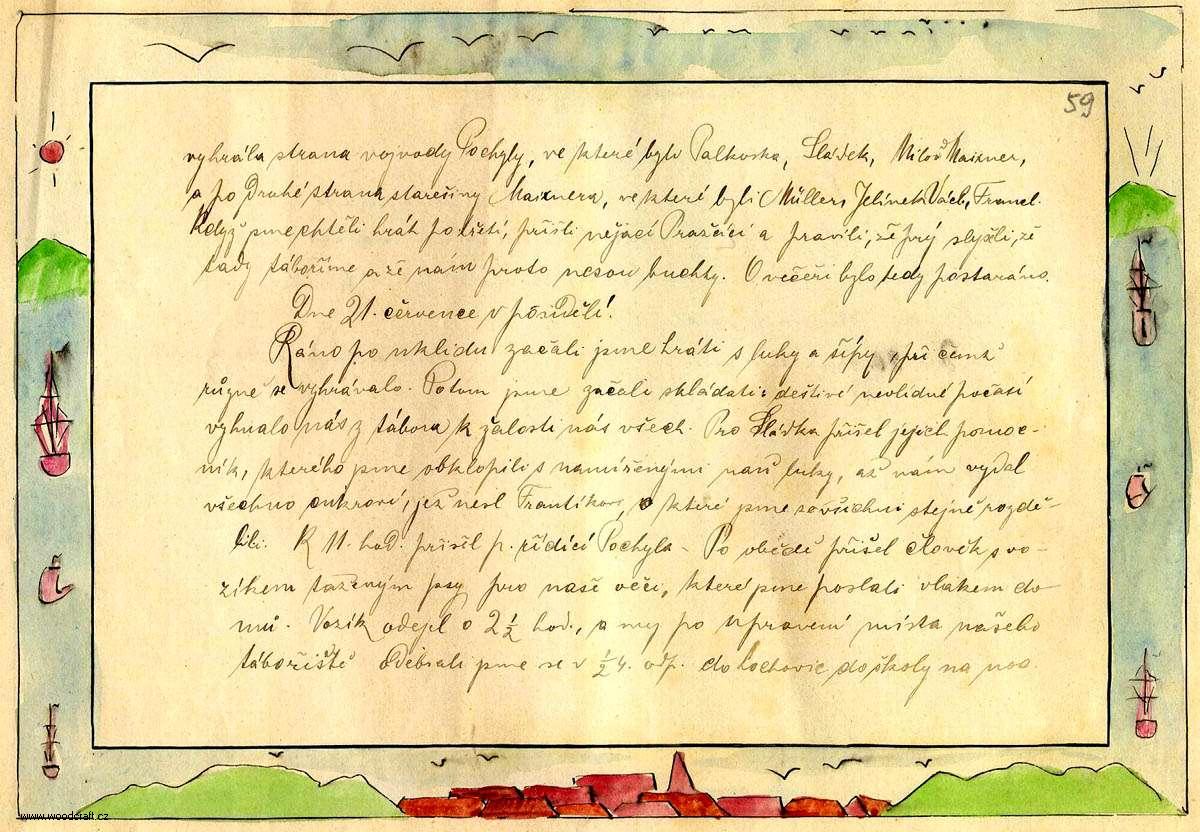 59
vyhrála strana vojvody Pochyly, ve které bylo Palkoska, Sládek, Miloš Maixner,
a po druhé strana starešiny Maixnera, ve které byli Müller, Jelínek Václ., Francl.
Když jsme chtěli hrát potřetí, přišli nějací Pražáci a pravili, že prý slyšeli, že
tady táboříme a že nám proto nesou buchty. O večeři bylo tedy postaráno.
Dne 21. července v pondělí.
Ráno po uklidu začali jsme hráti s luky a šípy při čemž
různě se vyhrávalo. Potom jsme začali skládati: deštivé nevlídné počasí
vyhnalo nás z tábora k žalosti nás všech. Pro Sládka přišel jejich pomoc-
ník, kterého jsme obklopili s namířenými luky, až nám vydal
všechno cukroví, jež nesl Frantíkovi, o které jsme se všichni stejně rozdě-
lili. K 11. hod. přišel p. řídící Pochyla - Po obědě přišel člověk s vo-
zíkem taženým psy pro naše věci, které jsme poslali vlakem do-
mů. Vozík odejel o 2 ½ hod., a my po upravení místa našeho
tábořiště odebrali jsme se v ½ 4. odp. do Lochovic do školy na noc
www.woodcraft.cz